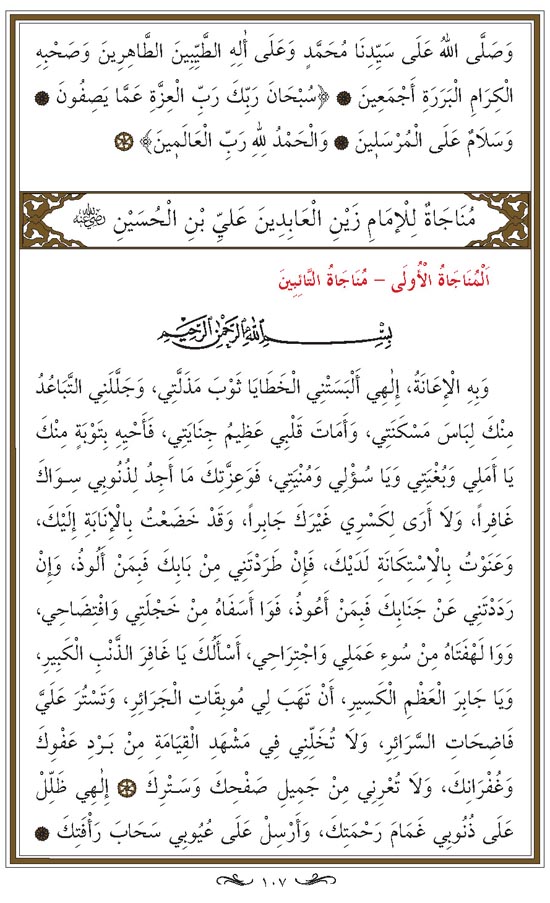 وَصَلَّى اللهُ عَلَى سَيِّدِنَا مُحَمَّدٍ وَعَلَى أٰلِهِ الطَّيِّبِينَ الطَّاهِرِينَ وَصَحْبِهِ
الْكِرَامِ الْبَرَرَةِ أَجْمَعِينَ ۞ ﴿سُبْحَانَ رَبِّكَ رَبِّ الْعِزَّةِ عَمَّا يَصِفُونَ ۞
وَسَلَامٌ عَلَى الْمُرْسَلِينَ ۞ وَالْحَمْدُ لِلهِ رَبِّ الْعَالَمِينَ﴾ ۞
مُنَاجَاةٌ لِلْإِمَامِ زَيْنِ الْعَابِدِينَ عَلِيِّ بْنِ الْحُسَيْنِ رضي الله عنه
اَلْمُنَاجَاةُ الْأُولَى – مُنَاجَاةُ التَّائِبِينَ
بِسْمِ اللهِ الرَّحْمٰنِ الرَّحِيمِ
وَبِهِ الْإِعَانَةُ، إِلٰهِي أَلْبَسَتْنِي الْخَطَايَا ثَوْبَ مَذَلَّتِي، وَجَلَّلَنِي التَّبَاعُدُ
مِنْكَ لِبَاسَ مَسْكَنَتِي، وَأَمَاتَ قَلْبِي عَظِيمُ جِنَايَتِي، فَأَحْيِهِ بِتَوْبَةٍ مِنْكَ
يَا أَمَلِي وَبُغْيَتِي وَيَا سُؤْلِي وَمُنْيَتِي، فَوَعِزَّتِكَ مَا أَجِدُ لِذُنُوبِي سِوَاكَ
غَافِراً، وَلَا أَرَى لِكَسْرِي غَيْرَكَ جَابِراً، وَقَدْ خَضَعْتُ بِالْإِنَابَةِ إِلَيْكَ،
وَعَنَوْتُ بِالْاِسْتِكَانَةِ لَدَيْكَ، فَإِنْ طَرَدْتَنِي مِنْ بَابِكَ فَبِمَنْ أَلُوذُ، وَإِنْ
رَدَدْتَنِي عَنْ جَنَابِكَ فَبِمَنْ أَعُوذُ، فَوَا أَسَفَاهُ مِنْ خَجْلَتِي وَافْتِضَاحِي،
وَوَا لَهْفَتَاهُ مِنْ سُوءِ عَمَلِي وَاجْتِرَاحِي، أَسْأَلُكَ يَا غَافِرَ الذَّنْبِ الْكَبِيرِ،
وَيَا جَابِرَ الْعَظْمِ الْكَسِيرِ، أَنْ تَهَبَ لِي مُوبِقَاتِ الْجَرَائِرِ، وَتَسْتُرَ عَلَيَّ
فَاضِحَاتِ السَّرَائِرِ، وَلَا تُخَلِّنِي فِي مَشْهَدِ الْقِيَامَةِ مِنْ بَرْدِ عَفْوِكَ
وَغُفْرَانِكَ، وَلَا تُعْرِنِي مِنْ جَمِيلِ صَفْحِكَ وَسَتْرِكَ ۞ إِلٰهِي ظَلِّلْ
عَلَى ذُنُوبِي غَمَامَ رَحْمَتِكَ، وَأَرْسِلْ عَلَى عُيُوبِي سَحَابَ رَأْفَتِكَ ۞
١٠٧